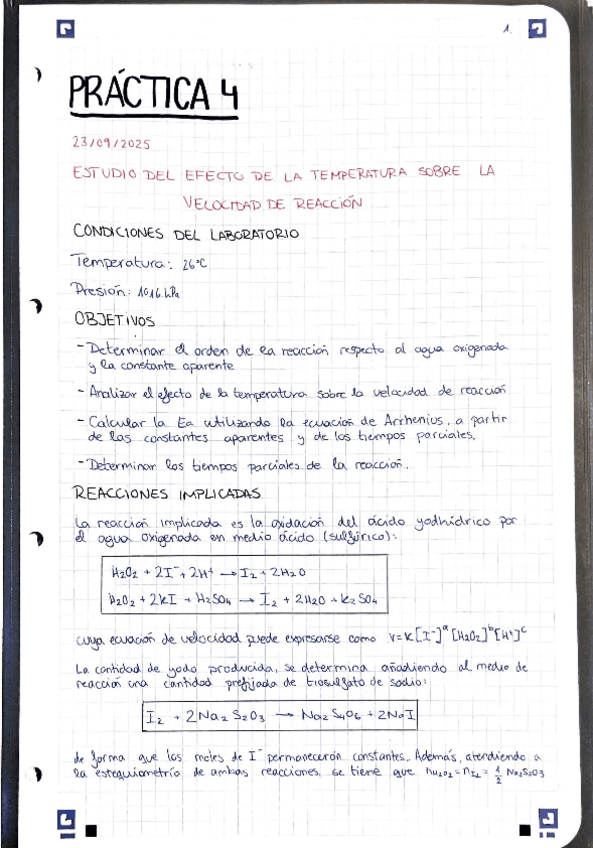 1.
PRÁCTICA 4
23/09/2025
ESTUDIO DEL EFECTO DE LA TEMPERATURA SOBRE LA
VELOCIDAD DE REACCIÓN
CONDICIONES DEL LABORATORIO
Temperatura: 26°C
Presión: 1016 hPa
OBJETIVOS
- Determinar el orden de la reacción respecto al agua oxigenada
y la constante aparente
- Analizar el efecto de la temperatura sobre la velocidad de reacción
- Calcular la Ea utilizando la ecuación de Arrhenius, a partir
de las constantes aparentes y de los tiempos parciales.
- Determinar los tiempos parciales de la reacción.
REACCIONES IMPLICADAS
La reacción implicada es la oxidación del ácido yodhídrico por
el agua oxigenada en medio ácido (sulfúrico):
H₂O₂ + 2I⁻ + 2H⁺ → I₂ + 2H₂O
H₂O₂ + 2KI + H₂SO₄ → I₂ + 2H₂O + K₂SO₄
cuya ecuación de velocidad puede expresarse como v=k[I⁻]ᵃ[H₂O₂]ᵇ[H⁺]ᶜ
La cantidad de yodo producida, se determina añadiendo al medio de
reacción una cantidad prefijada de tiosulfato de sodio:
I₂ + 2Na₂S₂O₃ → Na₂S₄O₆ + 2NaI
de forma que los moles de I⁻ permanecerán constantes. Además, atendiendo a
la estequiometría de ambas reacciones, se tiene que nH₂O₂ = nI₂ = 1/2 Na₂S₂O₃